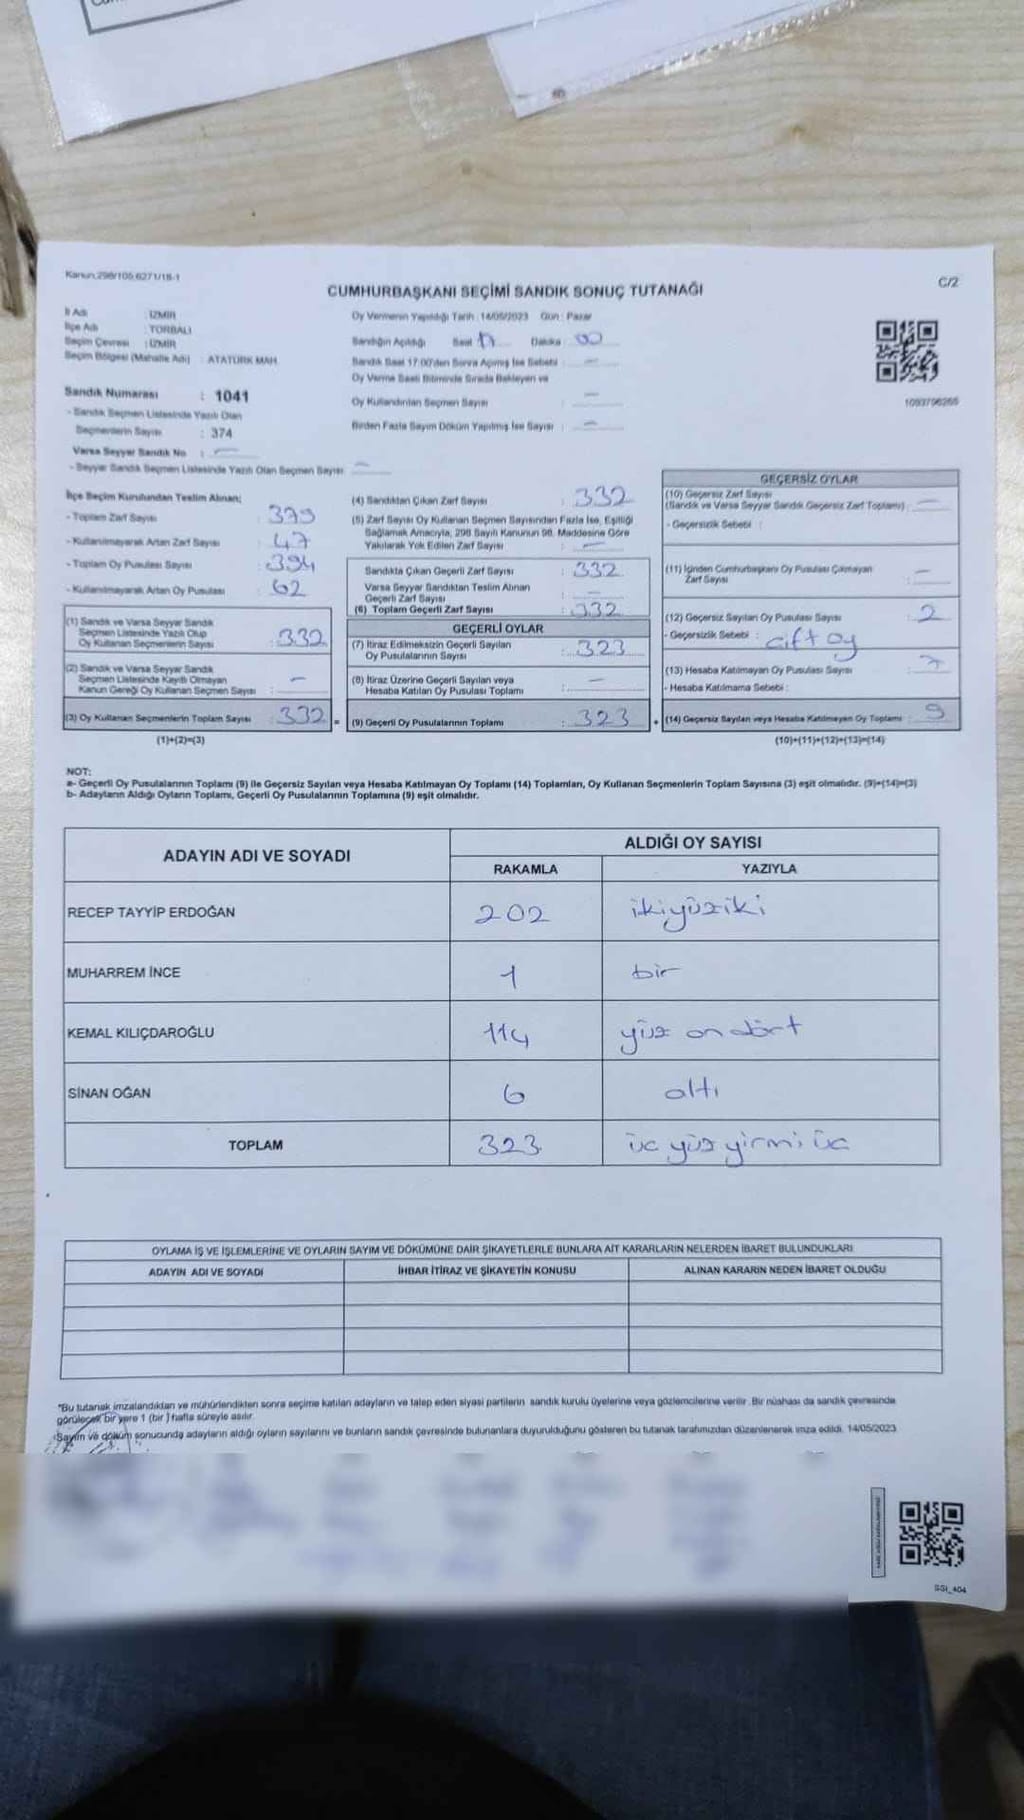 Kanun:298/105 6271/18-1
C/2
CUMHURBAŞKANI SEÇİMİ SANDIK SONUÇ TUTANAĞI
İl Adı : İZMİR
İlçe Adı : TORBALI
Seçim Çevresi : İZMİR
Seçim Bölgesi (Mahalle Adı) : ATATÜRK MAH.
Sandık Numarası : 1041
- Sandık Seçmen Listesinde Yazılı Olan
Seçmenlerin Sayısı : 374
Varsa Seyyar Sandık No : —
- Seyyar Sandık Seçmen Listesinde Yazılı Olan Seçmen Sayısı —
Oy Vermenin Yapıldığı Tarih : 14/05/2023 Gün : Pazar
Sandığın Açıldığı Saat Dakika 00
Sandık Saat 17:00'den Sonra Açılmış İse Sebebi : —
Oy Verme Saati Bitiminde Sırada Bekleyen ve
Oy Kullandırılan Seçmen Sayısı : —
Birden Fazla Sayım Döküm Yapılmış İse Sayısı : —
1093796265
İlçe Seçim Kurulundan Teslim Alınan;
- Toplam Zarf Sayısı : 379
- Kullanılmayarak Artan Zarf Sayısı : 47
- Toplam Oy Pusulası Sayısı : 394
- Kullanılmayarak Artan Oy Pusulası : 62
(1) Sandık ve Varsa Seyyar Sandık
Seçmen Listesinde Yazılı Olup
Oy Kullanan Seçmenlerin Sayısı : 332
(2) Sandık ve Varsa Seyyar Sandık
Seçmen Listesinde Kayıtlı Olmayan
Kanun Gereği Oy Kullanan Seçmen Sayısı : —
(3) Oy Kullanan Seçmenlerin Toplam Sayısı : 332 =
(1)+(2)=(3)
(4) Sandıktan Çıkan Zarf Sayısı : 332
(5) Zarf Sayısı Oy Kullanan Seçmen Sayısından Fazla İse, Eşitliği
Sağlamak Amacıyla, 298 Sayılı Kanunun 98. Maddesine Göre
Yakılarak Yok Edilen Zarf Sayısı : —
Sandıkta Çıkan Geçerli Zarf Sayısı : 332
Varsa Seyyar Sandıktan Teslim Alınan
Geçerli Zarf Sayısı : —
(6) Toplam Geçerli Zarf Sayısı : 332
GEÇERLİ OYLAR
(7) İtiraz Edilmeksizin Geçerli Sayılan
Oy Pusulalarının Sayısı : 323
(8) İtiraz Üzerine Geçerli Sayılan veya
Hesaba Katılan Oy Pusulası Toplamı : —
(9) Geçerli Oy Pusulalarının Toplamı : 323 +
GEÇERSİZ OYLAR
(10) Geçersiz Zarf Sayısı
(Sandık ve Varsa Seyyar Sandık Geçersiz Zarf Toplamı) : —
- Geçersizlik Sebebi :
(11) İçinden Cumhurbaşkanı Oy Pusulası Çıkmayan
Zarf Sayısı : —
(12) Geçersiz Sayılan Oy Pusulası Sayısı : 2
- Geçersizlik Sebebi : çift oy
(13) Hesaba Katılmayan Oy Pusulası Sayısı : 7
- Hesaba Katılmama Sebebi :
(14) Geçersiz Sayılan veya Hesaba Katılmayan Oy Toplamı : 9
(10)+(11)+(12)+(13)=(14)
NOT:
a- Geçerli Oy Pusulalarının Toplamı (9) ile Geçersiz Sayılan veya Hesaba Katılmayan Oy Toplamı (14) Toplamları, Oy Kullanan Seçmenlerin Toplam Sayısına (3) eşit olmalıdır. (9)+(14)=(3)
b- Adayların Aldığı Oyların Toplamı, Geçerli Oy Pusulalarının Toplamına (9) eşit olmalıdır.
ADAYIN ADI VE SOYADI ALDIĞI OY SAYISI
RAKAMLA YAZIYLA
RECEP TAYYİP ERDOĞAN 202 ikiyüziki
MUHARREM İNCE 1 bir
KEMAL KILIÇDAROĞLU 114 yüz on dört
SİNAN OĞAN 6 altı
TOPLAM 323 üç yüz yirmi üç
OYLAMA İŞ VE İŞLEMLERİNE VE OYLARIN SAYIM VE DÖKÜMÜNE DAİR ŞİKAYETLERLE BUNLARA AİT KARARLARIN NELERDEN İBARET BULUNDUKLARI
ADAYIN ADI VE SOYADI İHBAR İTİRAZ VE ŞİKAYETİN KONUSU ALINAN KARARIN NEDEN İBARET OLDUĞU
*Bu tutanak imzalandıktan ve mühürlendikten sonra seçime katılan adayların ve talep eden siyasi partilerin sandık kurulu üyelerine veya gözlemcilerine verilir. Bir nüshası da sandık çevresinde
görülecek bir yere 1 (bir) hafta süreyle asılır.
Sayım ve döküm sonucunda adayların aldığı oyların sayılarını ve bunların sandık çevresinde bulunanlara duyurulduğunu gösteren bu tutanak tarafımızdan düzenlenerek imza edildi. 14/05/2023